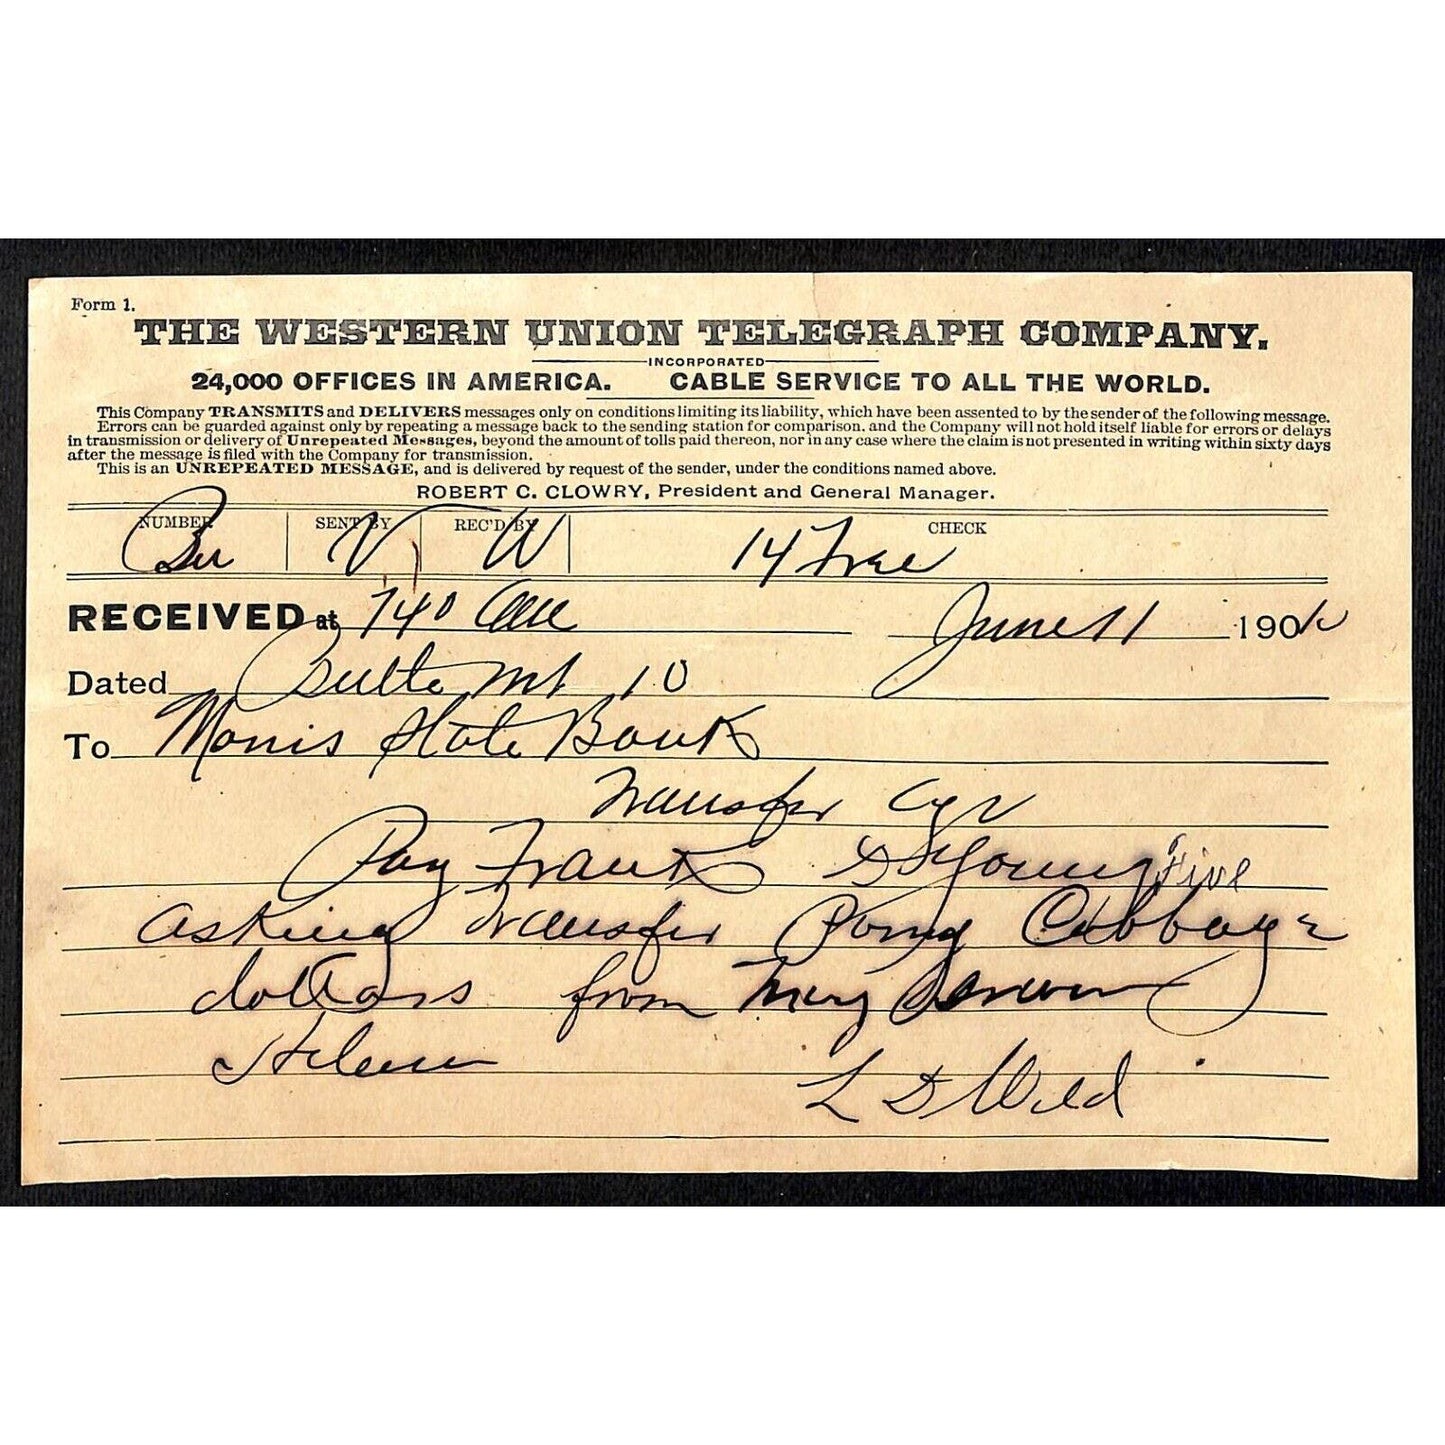 Form 1.
THE WESTERN UNION TELEGRAPH COMPANY.
INCORPORATED
24,000 OFFICES IN AMERICA. CABLE SERVICE TO ALL THE WORLD.
This Company TRANSMITS and DELIVERS messages only on conditions limiting its liability, which have been assented to by the sender of the following message.
Errors can be guarded against only by repeating a message back to the sending station for comparison, and the Company will not hold itself liable for errors or delays
in transmission or delivery of Unrepeated Messages, beyond the amount of tolls paid thereon, nor in any case where the claim is not presented in writing within sixty days
after the message is filed with the Company for transmission.
This is an UNREPEATED MESSAGE, and is delivered by request of the sender, under the conditions named above.
ROBERT C. CLOWRY, President and General Manager.
NUMBER SENT BY REC'D BY CHECK
V W 14 Free
RECEIVED at 740 June 11 190
Dated Butte Mt 10
To Morris State Bank
Transfer Agt
Pay Frank D Young Five
asking transfer Pony Cabbage
dollars from Mary
Helena
L D Wild